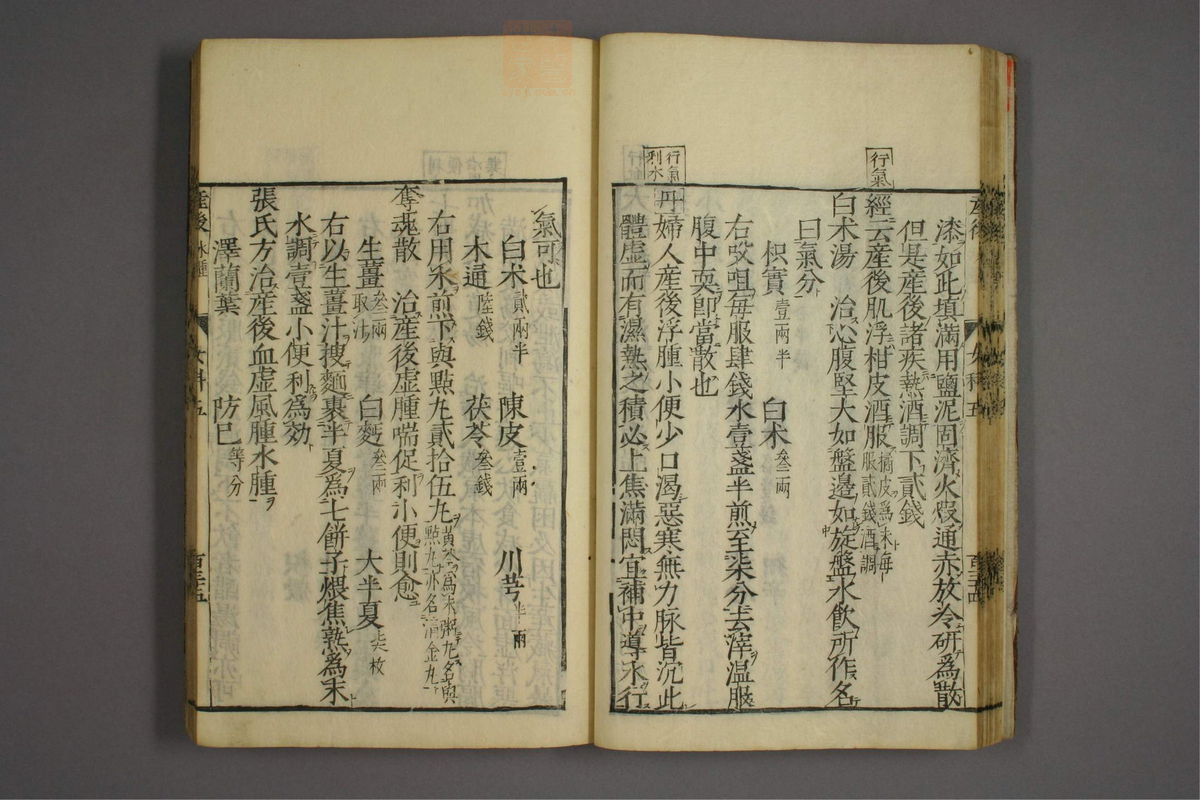 漆如此填滿用鹽泥固濟火煆通赤放冷研為散
但是産後諸疾熱酒調下貳錢
行氣
經云産後肌浮柑皮酒服橘皮為末毎服貳錢酒調
白朮湯 治心腹堅大如盤邊如旋盤水飲所作名
曰氣分
枳實壹兩半 白朮叄兩
右㕮咀毎服肆錢水壹盞半煎至柒分去滓温服
腹中耎即當散也
行氣利水
丹婦人産後浮腫小便少口渴惡寒無力脉皆沉此
體虛而有濕熱之積必上焦滿悶宜補中導水行
産後 女科五 百三十四
氣可也
白朮貳兩半 陳皮壹兩 川芎半兩
木通陸錢 茯苓叄錢
右用水煎下與點丸貳拾伍丸黄芩為末粥丸名與點丸亦名清金丸
奪魂散 治産後虛腫喘促利小便則愈
生薑叄兩取汁 白麪叄兩 大半夏柒枚
右以生薑汁搜麵裹半夏為七餅子煨焦熟為末
水調壹盞小便利為効
張氏方治産後血虛風腫水腫
澤蘭葉 防已等分
産後 水腫 女科五 百三十五